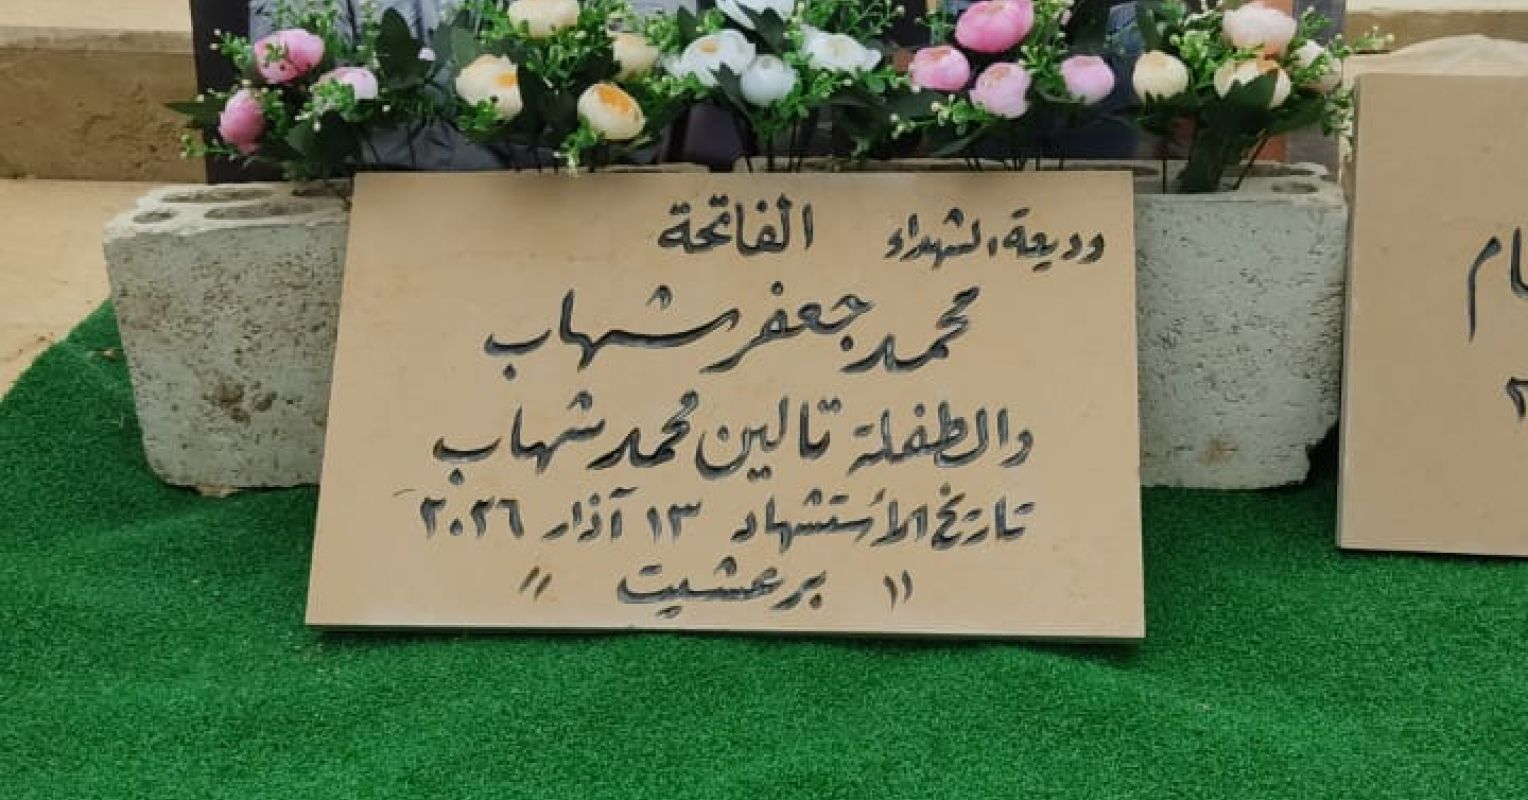 وديعة الشهداء الفاتحة
محمد جعفر شهاب
والطفلة تالين محمد شهاب
تاريخ الأستشهاد ١٣ آذار ٢٠٢٦
" برعشيت "